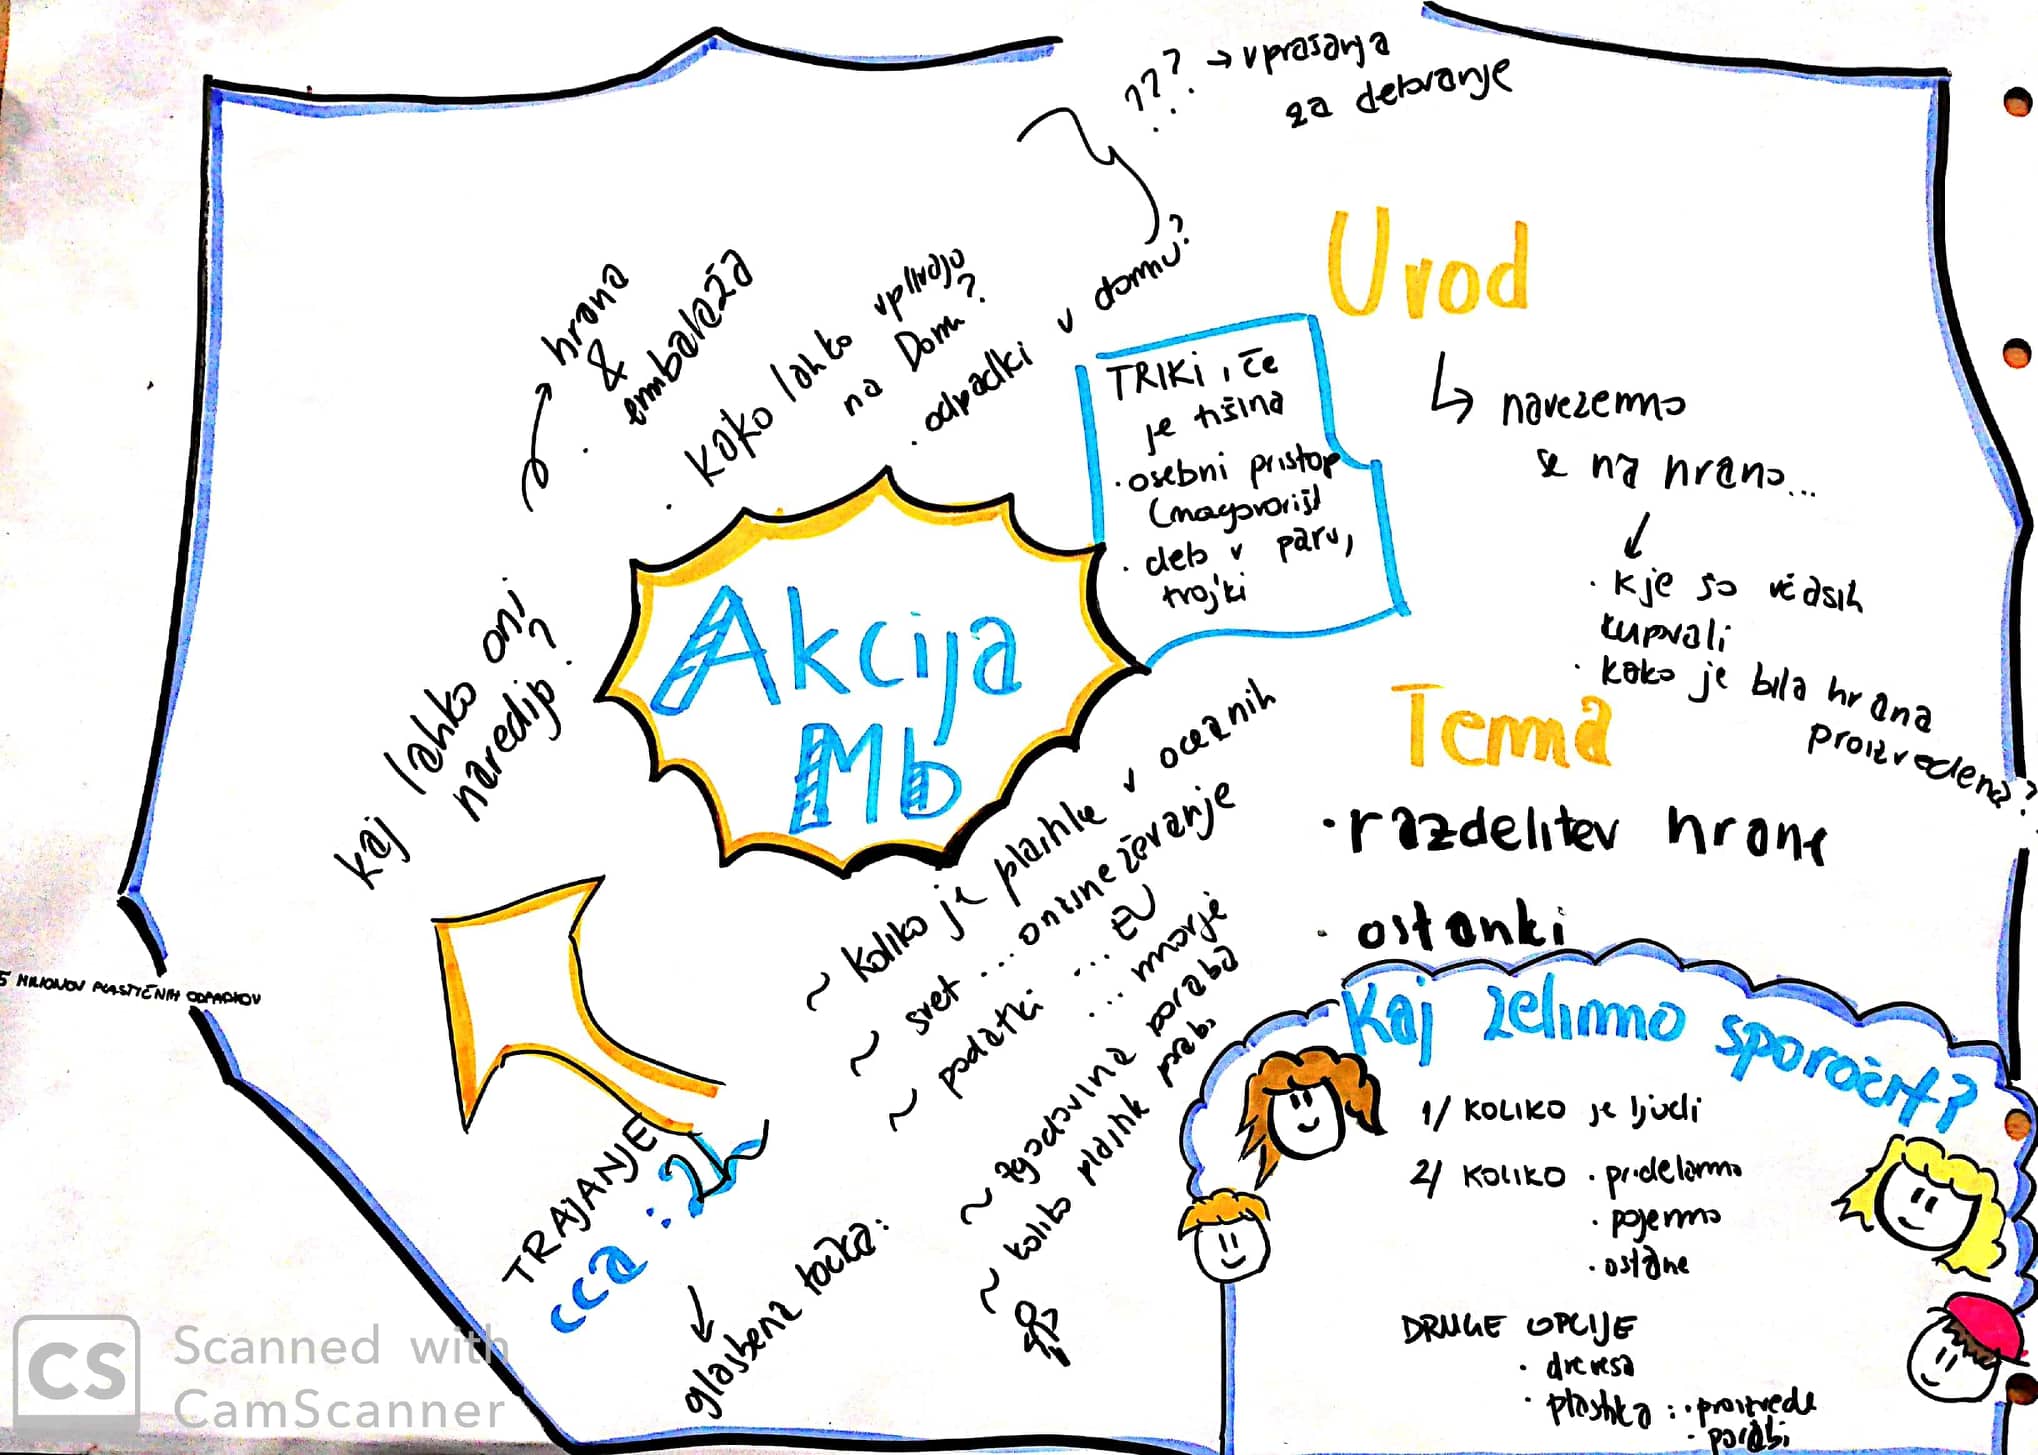 ??? → vprašanja
za debranje
Uvod
↳ navezemo
se na hrano...
↓
· kje so včasih
kupovali
· kako je bila hrana
proizvedena?
hrana
&
embalaža
· Kako lahko vplivajo
na Domu?
· odpadki v domu?
TRIKI, če
je tišina
· osebni pristop
· delo v paru,
trojki
Akcija
Mb
Kaj lahko oni
naredijo?
Tema
· razdelitev hrane
· ostanki
~ koliko je plastike v oceanih
~ svet ... onesneževanje
~ podatki ... EU
... morje
~ zgodovina poraba
~ koliko plastik porabo
MILIJONOV PLASTIČNIH ODPADKOV
TRAJANJE
cca : 2h
glasbena točka:
Kaj želimo sporočit?
1/ KOLIKO je ljudi
2/ KOLIKO · pridelamo
· pojemo
· ostane
DRUGE OPCIJE
· drevesa
· plastika : · proizvede
· porabi
CS Scanned with
CamScanner